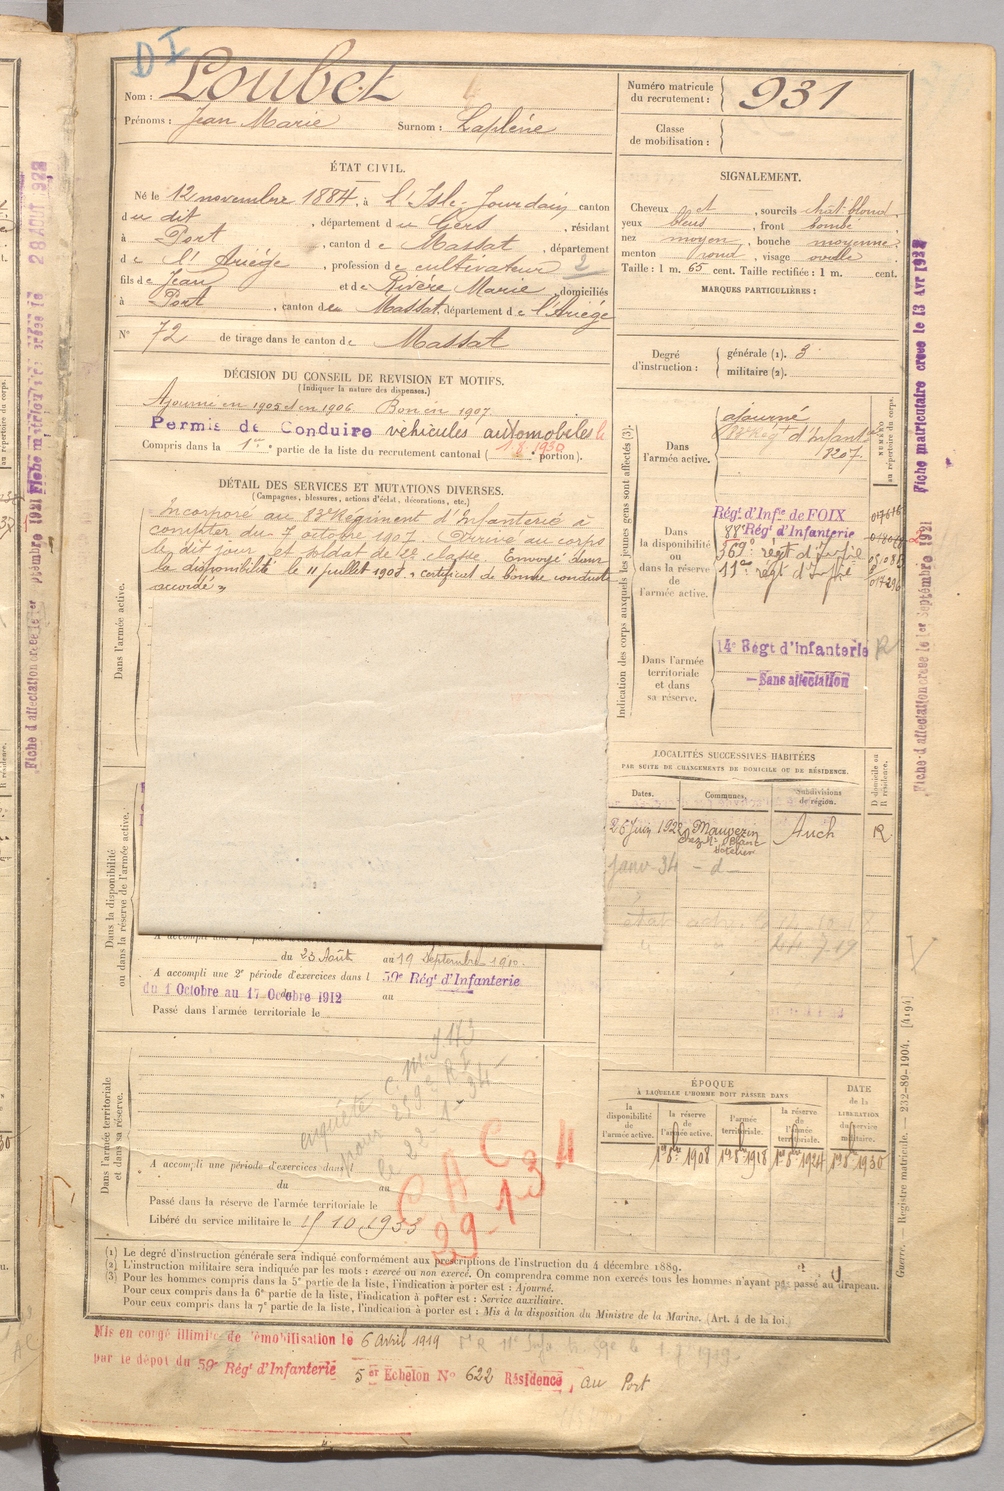 DI
Nom : Loubet
Prénoms : Jean Marie Surnom : Laplène
Numéro matricule du recrutement : 931
Classe de mobilisation :
ÉTAT CIVIL.
Né le 12 novembre 1884, à L'Isle-Jourdain canton
du dit, département du Gers, résidant
à Port, canton de Massat, département
de l'Ariège, profession de cultivateur 2
fils de Jean et de Rivère Marie, domiciliés
à Port, canton de Massat, département de l'Ariège
N° 72 de tirage dans le canton de Massat
SIGNALEMENT.
Cheveux et, sourcils chât. blond,
yeux bleus, front bombé
nez moyen, bouche moyenne
menton rond, visage ovale
Taille : 1 m. 65 cent. Taille rectifiée : 1 m. cent.
MARQUES PARTICULIÈRES :
Degré d'instruction : générale (1). 3
militaire (2).
DÉCISION DU CONSEIL DE REVISION ET MOTIFS.
(Indiquer la nature des dispenses.)
Ajourné en 1905 et en 1906 Bon en 1907.
Permis de Conduire véhicules automobiles le
1.8.1930
Compris dans la 1re partie de la liste du recrutement cantonal ( portion).
DÉTAIL DES SERVICES ET MUTATIONS DIVERSES.
(Campagnes, blessures, actions d'éclat, décorations, etc.)
Dans l'armée active.
Incorporé au 83e Régiment d'Infanterie à
compter du 7 octobre 1907. Arrivé au corps
le dit jour et soldat de 2e classe. Envoyé dans
la disponibilité le 11 juillet 1908. « certificat de bonne conduite
accordé »
Indication des corps auxquels les jeunes gens sont affectés (3).
NUMÉRO au répertoire du corps.
Dans l'armée active.
ajourné
83e Régt d'Infant
1207.
Dans la disponibilité ou dans la réserve de l'armée active.
Régt d'Infie de FOIX
88e Régt d'Infanterie
369e régt d'Infie
11e régt d'Infie
Dans l'armée territoriale et dans sa réserve.
14e Régt d'Infanterie R
Sans affectation
LOCALITÉS SUCCESSIVES HABITÉES
PAR SUITE DE CHANGEMENTS DE DOMICILE OU DE RÉSIDENCE.
D domicile ou R résidence.
Dates. Communes. Subdivisions de région.
26 Juin 1922 Mauvezin Auch R.
chez Mr Blanc
hôtelier
Janv 34 - d -
Dans la disponibilité ou dans la réserve de l'armée active.
du 23 Août au 19 Septembre 1910.
A accompli une 2e période d'exercices dans l 59e Régt d'Infanterie
du 1 Octobre au 17 Octobre 1912 au
Passé dans l'armée territoriale le
Dans l'armée territoriale et dans sa réserve.
enquête C.M. J.143
pour 259e R I
le 22 1-34
A accompli une période d'exercices dans
du au
Passé dans la réserve de l'armée territoriale le
Libéré du service militaire le 15 10 1933
C A C
29-1-34
ÉPOQUE
À LAQUELLE L'HOMME DOIT PASSER DANS
DATE de la LIBÉRATION du service militaire.
la disponibilité de l'armée active. la réserve de l'armée active. l'armée territoriale. la réserve de l'armée territoriale.
1er 8bre 1908 1er 8bre 1918 1er 8bre 1924 1er 8bre 1930
(1) Le degré d'instruction générale sera indiqué conformément aux prescriptions de l'instruction du 4 décembre 1889.
(2) L'instruction militaire sera indiquée par les mots : exercé ou non exercé. On comprendra comme non exercés tous les hommes n'ayant pas passé au drapeau.
(3) Pour les hommes compris dans la 5e partie de la liste, l'indication à porter est : Ajourné.
Pour ceux compris dans la 6e partie de la liste, l'indication à porter est : Service auxiliaire.
Pour ceux compris dans la 7e partie de la liste, l'indication à porter est : Mis à la disposition du Ministre de la Marine. (Art. 4 de la loi.)
Mis en congé illimité de démobilisation le 6 avril 1919
par le dépôt du 59e Régt d'Infanterie 5er Echelon No 622 Résidence, au Port
Guerre. — Registre matricule. — 232-89-1904. [4194]
Fiche matriculaire créée le 13 Avr 1922
Fiche d'affectation créée le 1er Septembre 1921
28 AOUT 1922